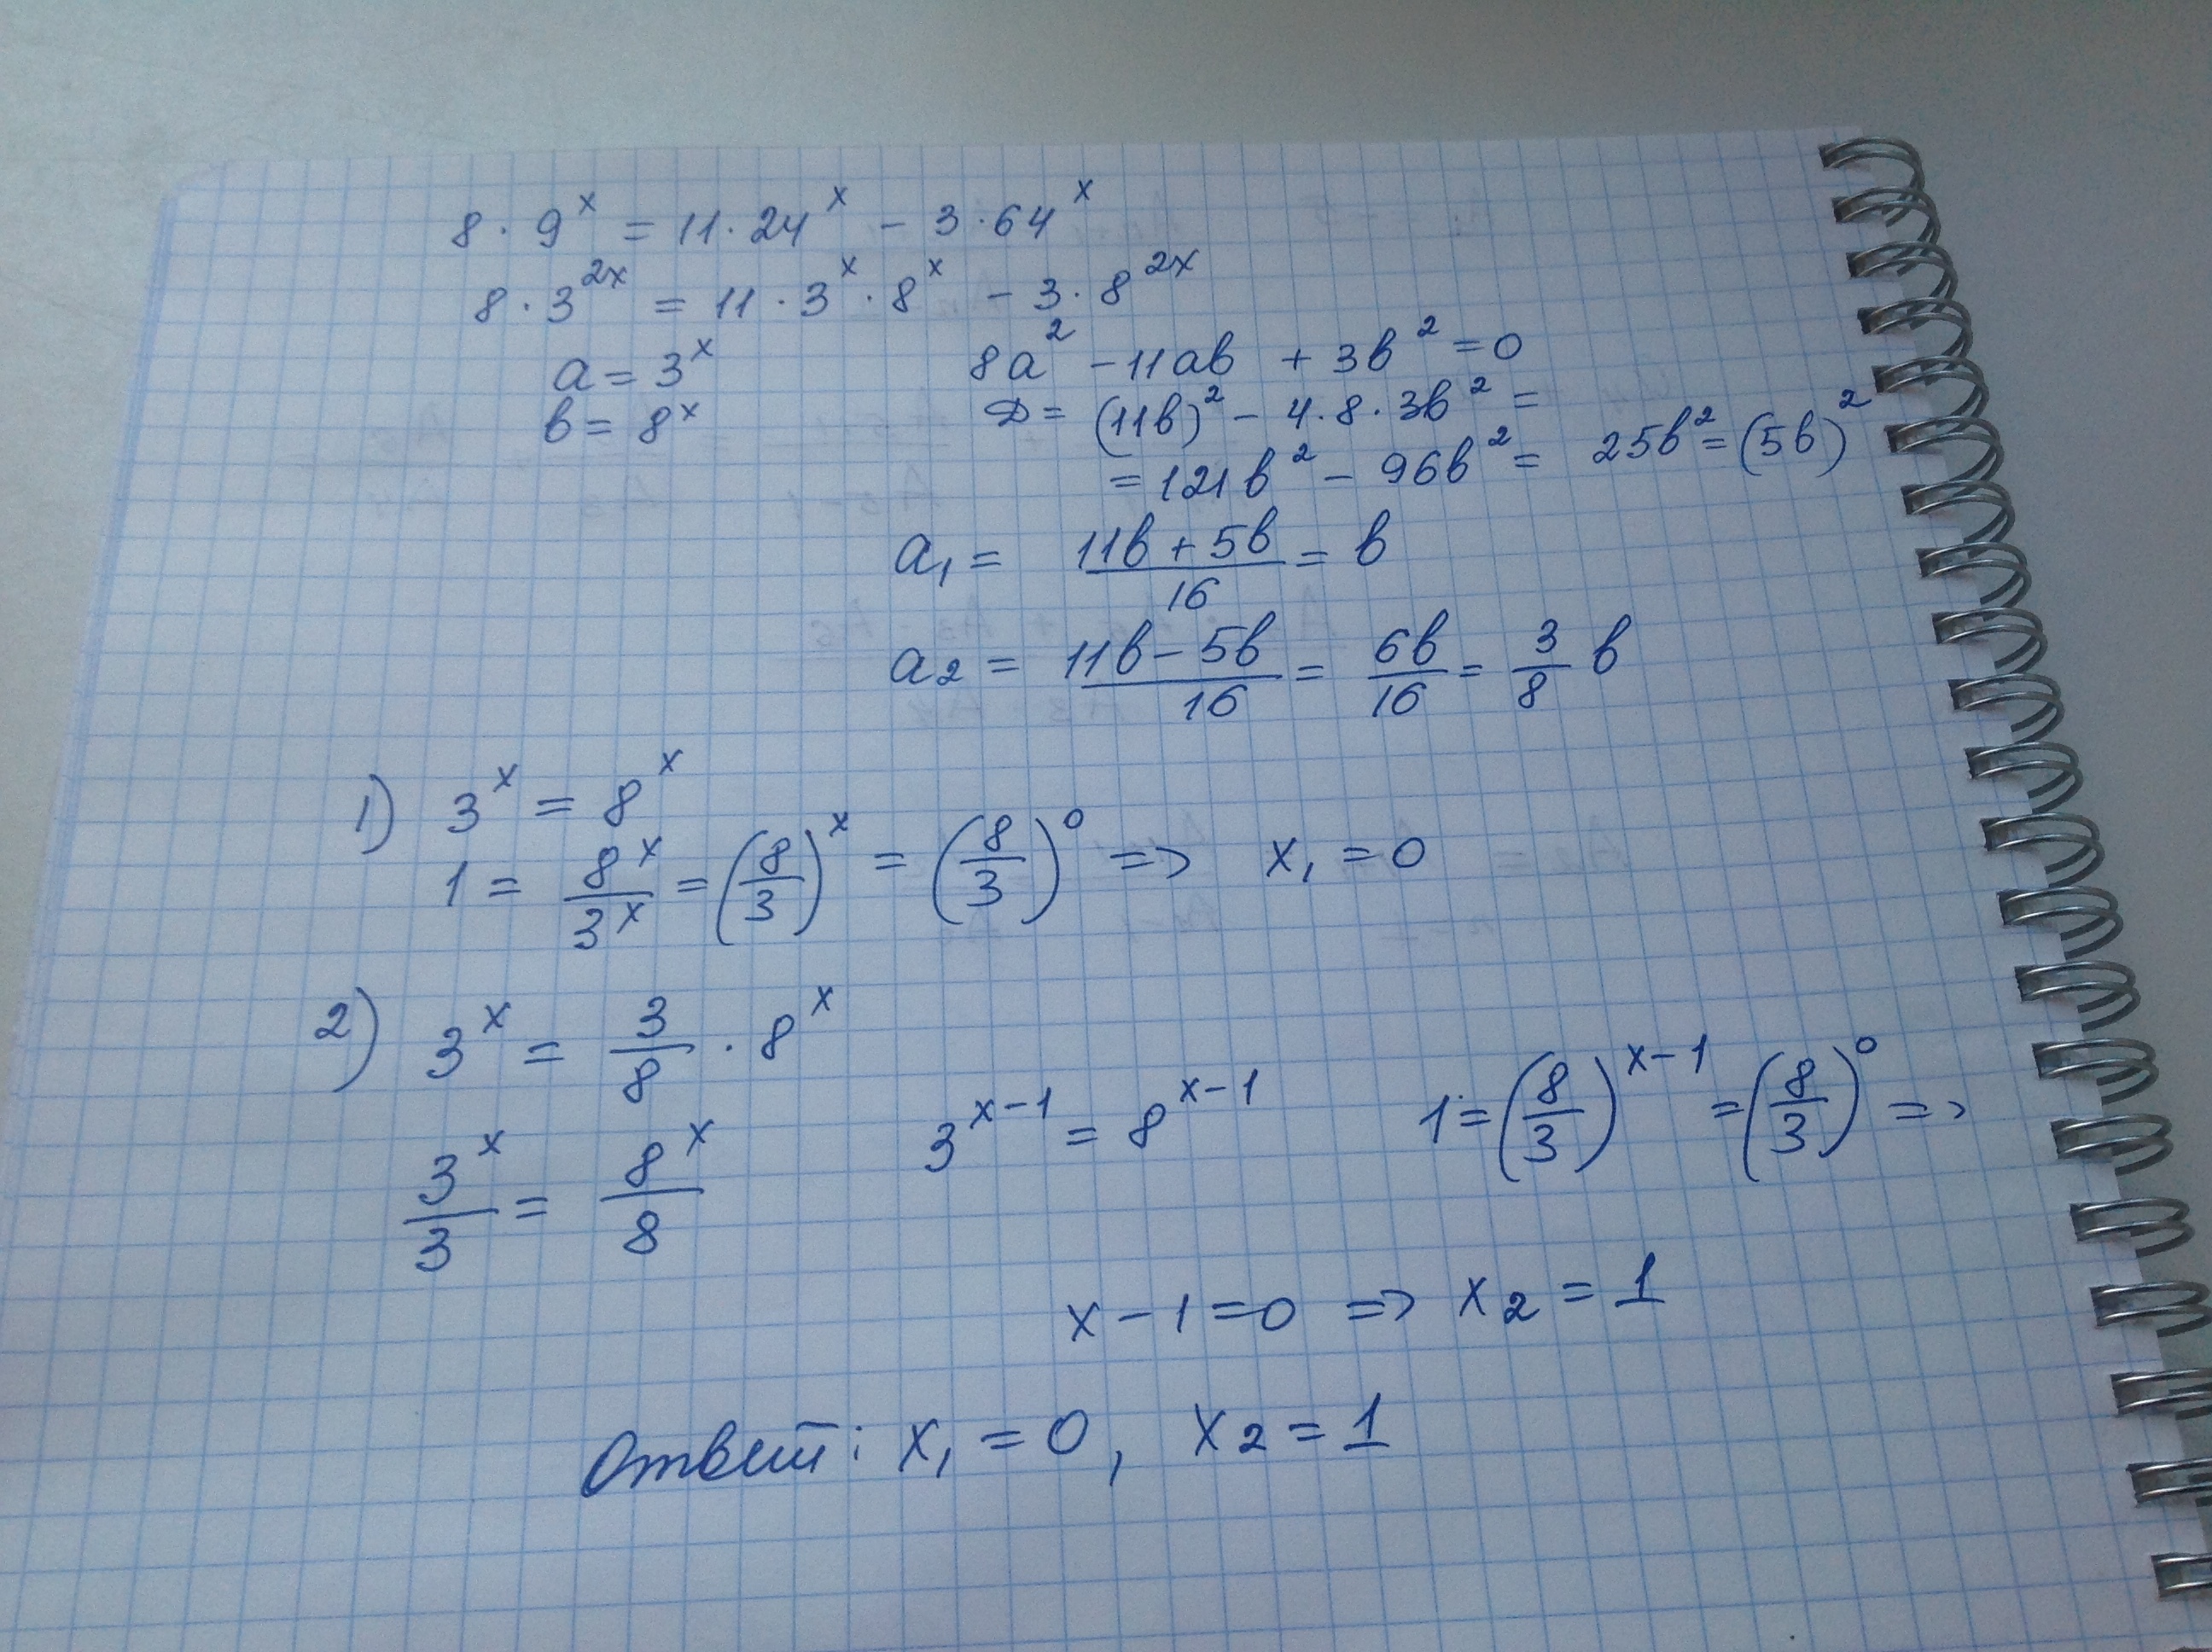 8 · 9^x = 11 · 24^x − 3 · 64^x
8 · 3^2x = 11 · 3^x · 8^x − 3 · 8^2x
a = 3^x
b = 8^x
8a² − 11ab + 3b² = 0
D = (11b)² − 4 · 8 · 3b² =
= 121b² − 96b² = 25b² = (5b)²
a₁ = (11b + 5b)/16 = b
a₂ = (11b − 5b)/16 = 6b/16 = 3/8 b
1) 3^x = 8^x
1 = 8^x/3^x = (8/3)^x = (8/3)^0 => x₁ = 0
2) 3^x = 3/8 · 8^x
3^x/3 = 8^x/8
3^(x−1) = 8^(x−1)
1 = (8/3)^(x−1) = (8/3)^0 =>
x − 1 = 0 => x₂ = 1
Ответ: x₁ = 0, x₂ = 1